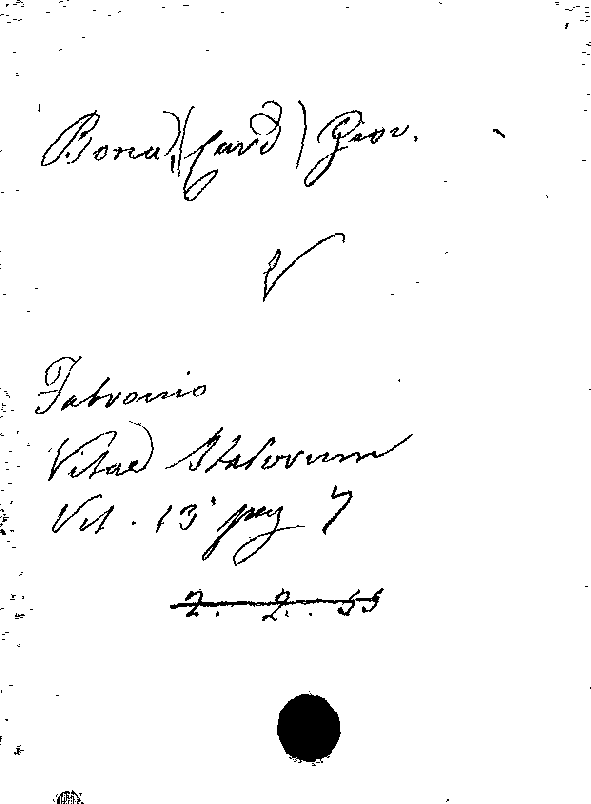 Bona (Card) Giov.
V
Fabronio
Vitae Italorum
Vit. 13 pag 7
2. 2. 55